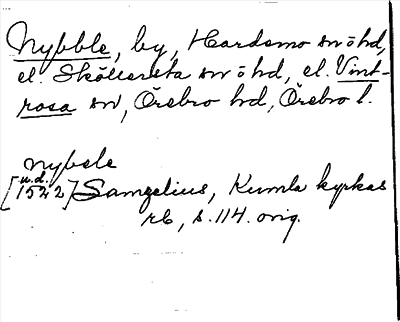 Nybble, by, Hardemo sn o hd,
el. Sköllersta sn o hd, el. Vint-
rosa sn, Örebro hd, Örebro l.
nybele
[u.d. 1522] Samzelius, Kumla kyrkas
rb, s. 114. orig.